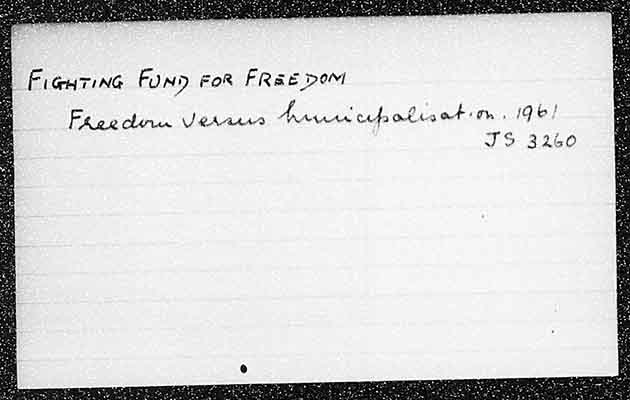 FIGHTING FUND FOR FREEDOM
Freedom versus municipalisation. 1961
JS 3260